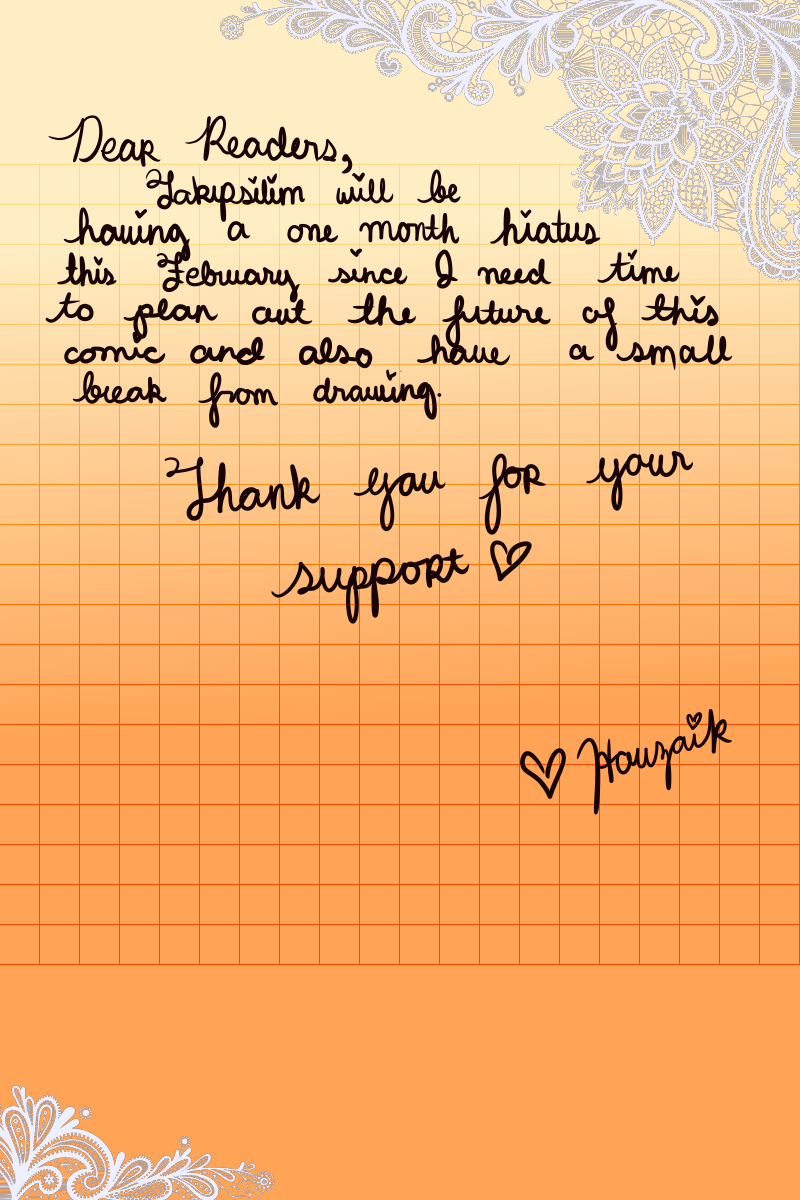 Dear Readers,
Fakipsilim will be
having a one month hiatus
this February since I need time
to plan out the future of this
comic and also have a small
break from drawing.
Thank you for your
support ♡
♡ Houzaik